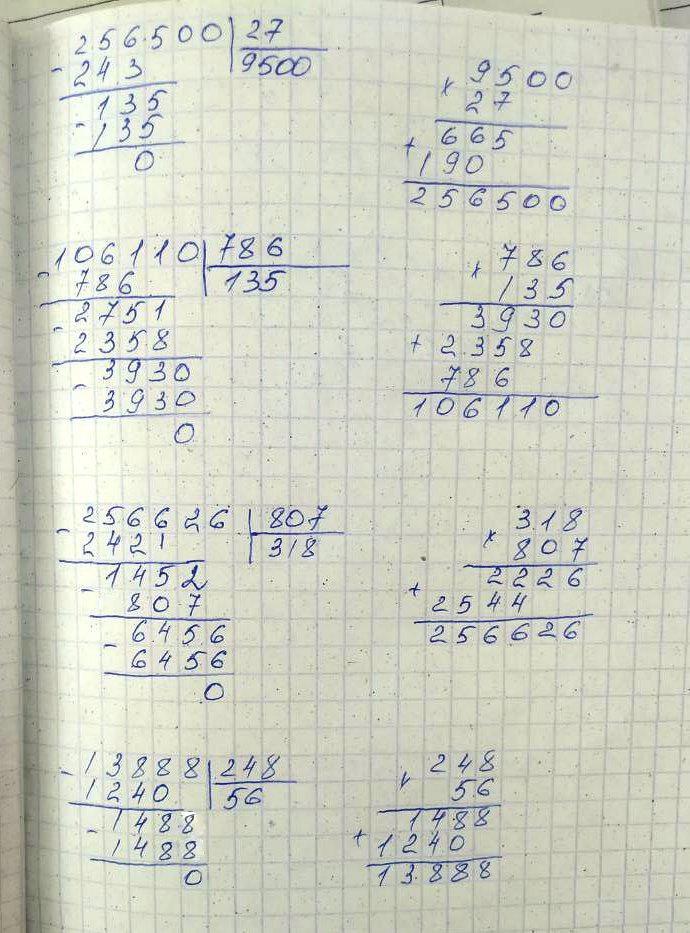 - 256500 | 27
243 | 9500
- 135
135
0
× 9500
27
665
+ 190
256500
- 106110 | 786
786 | 135
- 2751
2358
- 3930
3930
0
× 786
135
3930
+ 2358
786
106110
- 256626 | 807
2421 | 318
- 1452
807
- 6456
6456
0
× 318
807
2226
+ 2544
256626
- 13888 | 248
1240 | 56
- 1488
1488
0
× 248
56
1488
+ 1240
13888